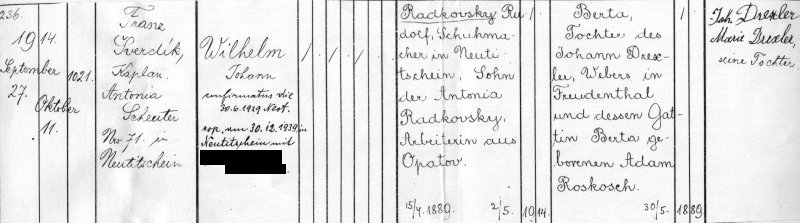 236.
19 14.
September
27.
Oktober
11.
1021.
Franz
Sverdék,
Kaplan.
Antonia
Scheuter
Nro 71. in
Neutitschein
Wilhelm
Johann
confirmatus die
30.6.1929 Neot.
cop. am 30.12.1939 in
Neutitschein mit
Radkovsky Ru
dolf, Schuhma-
cher in Neuti-
tschein, Sohn
der Antonia
Radkovsky,
Arbeiterin aus
Opatov.
15/4. 1889. 2/5. 19 14.
Berta,
Tochter des
Johann Drex-
ler, Webers in
Freudenthal
und dessen Gat-
tin Berta ge-
borenen Adam
Roskosch.
30/5. 18 89.
Joh. Drexler
Marie Drexler,
seine Tochter.